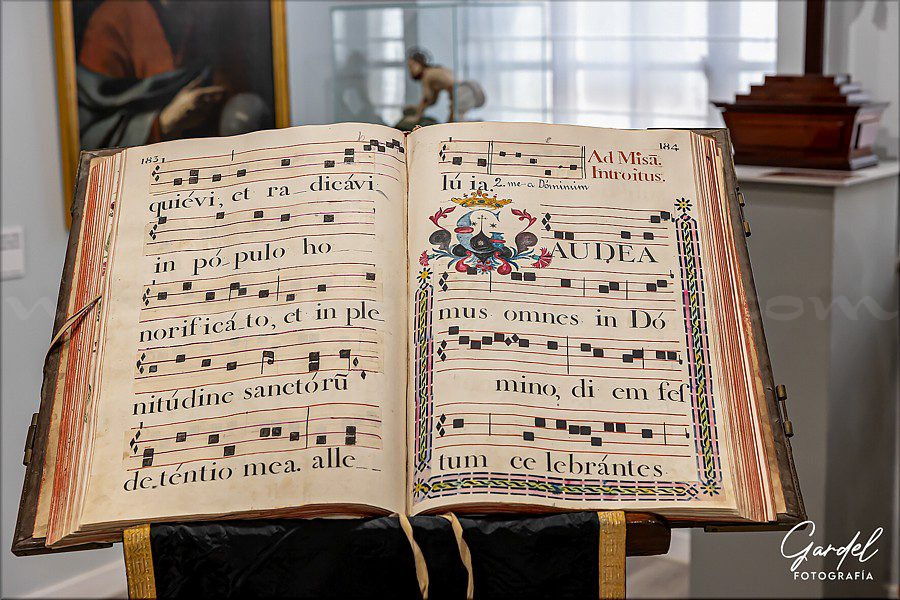 183
quiévi, et ra_dicávi
in pó_pulo ho
norificá_to, et in ple
nitúdine sanctórũ
de_téntio mea. alle_
184
Ad Misã.
Introitus.
lú ia. 2. me-a Dóminum
GAUDEA
mus omnes in Dó
mino, di em fes
tum ce lebrántes
Gardel
FOTOGRAFÍA